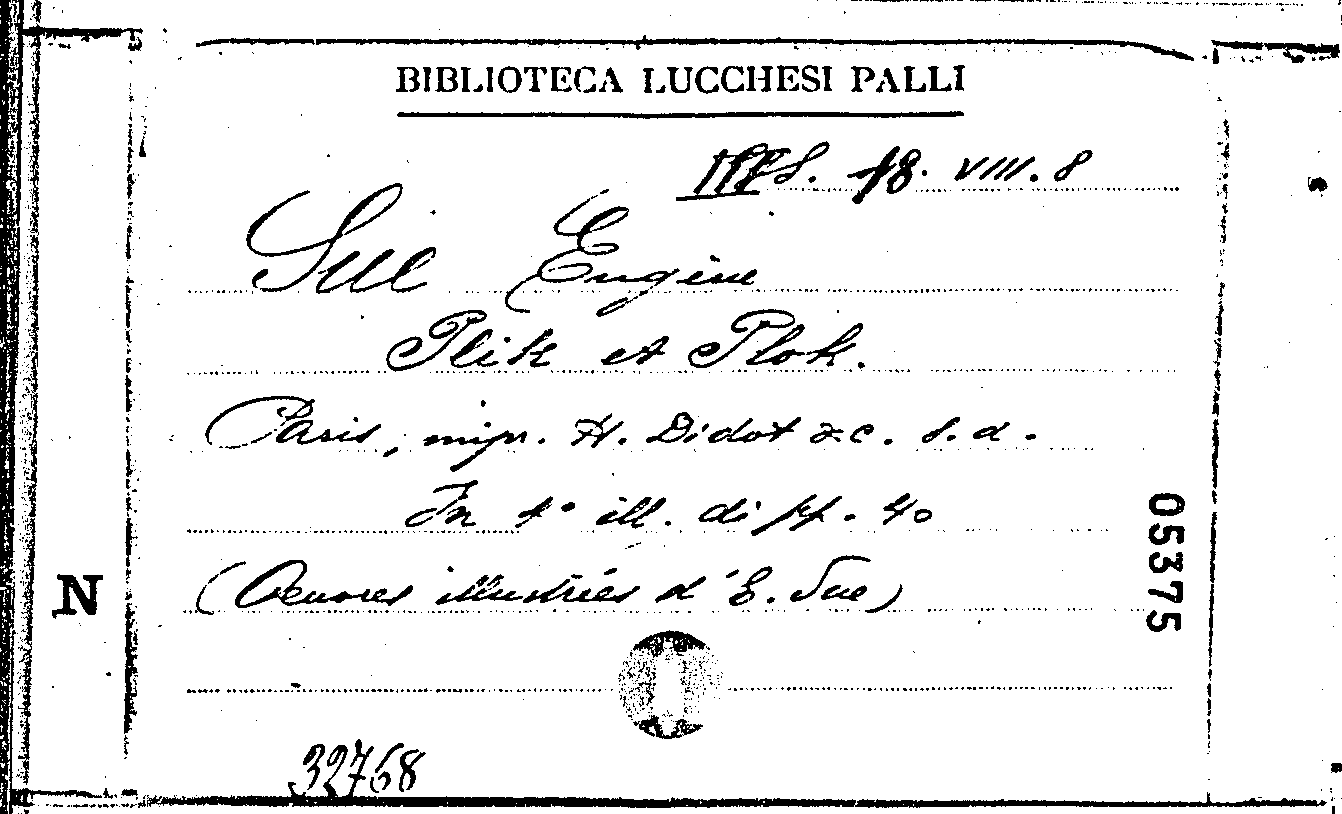 BIBLIOTECA LUCCHESI PALLI
18. VIII. 8
Sue Eugène
Plik et Plok.
Paris, impr. H. Didot & c. s. d.
In 4° ill. di pp. 40
(Oeuvres illustrées d'E. Sue)
05375
N
32768